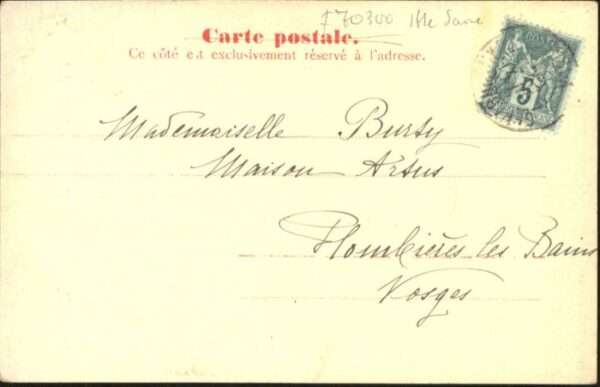 70300 Hte Saone
Carte postale.
Ce côté est exclusivement réservé à l'adresse.
5
Mademoiselle Burty
Maison Artus
Plombières les Bains
Vosges